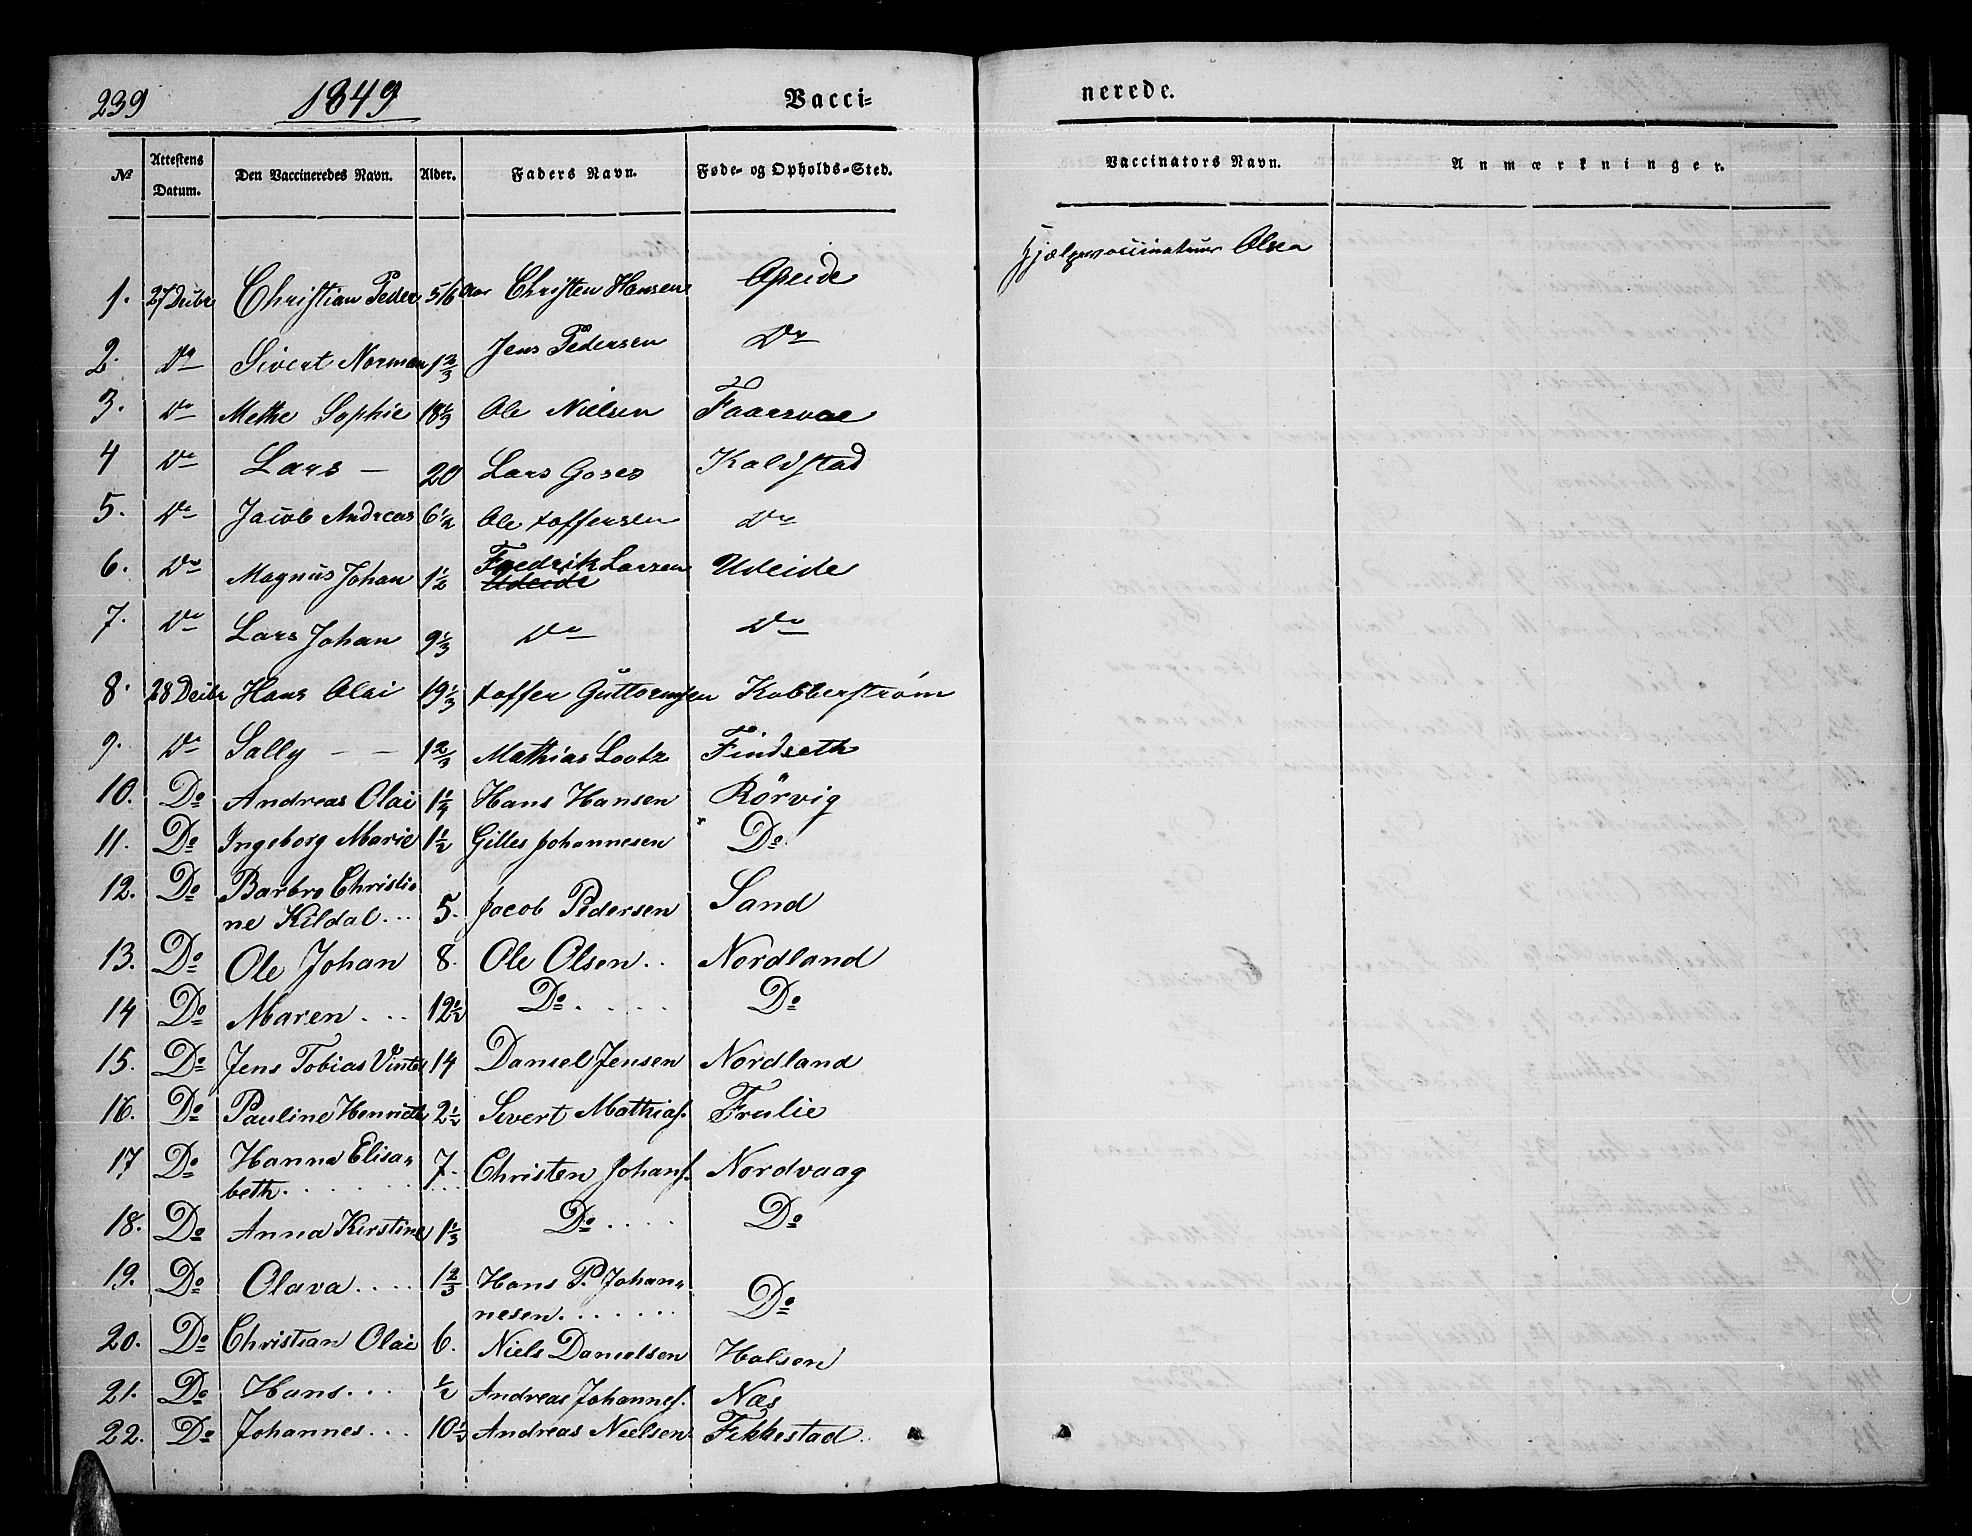 239 1849 Vacci-
nerede.
No Attestens Datum. Den Vaccineredes Navn. Alder. Faders Navn. Føde- og Opholds-Sted. Vaccinators Navn. Anmærkninger.
1. 27 Decbr Christian Peder 5/6 Aar Christen Hansen Opeide Hjælpevaccinateur Olsen
2. Do Sivert Norman 1 2/3 Jens Pedersen Do
3. Do Methe Sophie 18 1/3 Ole Nielsen
4 Do Lars — 20 Lars Goses Kaldstad
5. Do Jacob Andreas 6 1/2 Ole toffersen Do
6. Do Magnus Johan 1 1/2 Fredrik Larsen Udeide
Udeide
7. Do Lars Johan 9 1/3 Do Do
8. 28 Decbr Hans Olai 19 1/3 toffer Guttormsen Kobberstrøm
9. Do Sally — — 1 2/3 Mathias Lootz Findseth
10. Do Andreas Olai 1 1/4 Hans Hansen Rörvig
11. Do Ingeborg Marie 1 1/2 Gilles Johannesen Do
12. Do Barbro Christi-
ne Kildal... 5. Jacob Pedersen Sand
13. Do Ole Johan 8. Ole Olsen.. Nordland
14 Do Maren... 12 1/2 Do.... Do
15. Do Jens Tobias Vinter 14 Daniel Jensen Nordland
16. Do Pauline Henriette 2 1/2 Sivert Mathias. Frulie
17 Do Hanna Elisa-
beth...... 7. Christen Johans. Nordvaag
18. Do Anna Kirstine 1 1/3 Do.... Do
19. Do Olava.... 1 2/3 Hans P. Johan-
nesen...... Do
20. Do Christian Olai 6. Niels Danielsen Halsen
21. Do Hans... 1/2 Andreas Johannes. Næs
22. Do Johannes... 10 1/3 Andreas Nielsen Fikkestad.